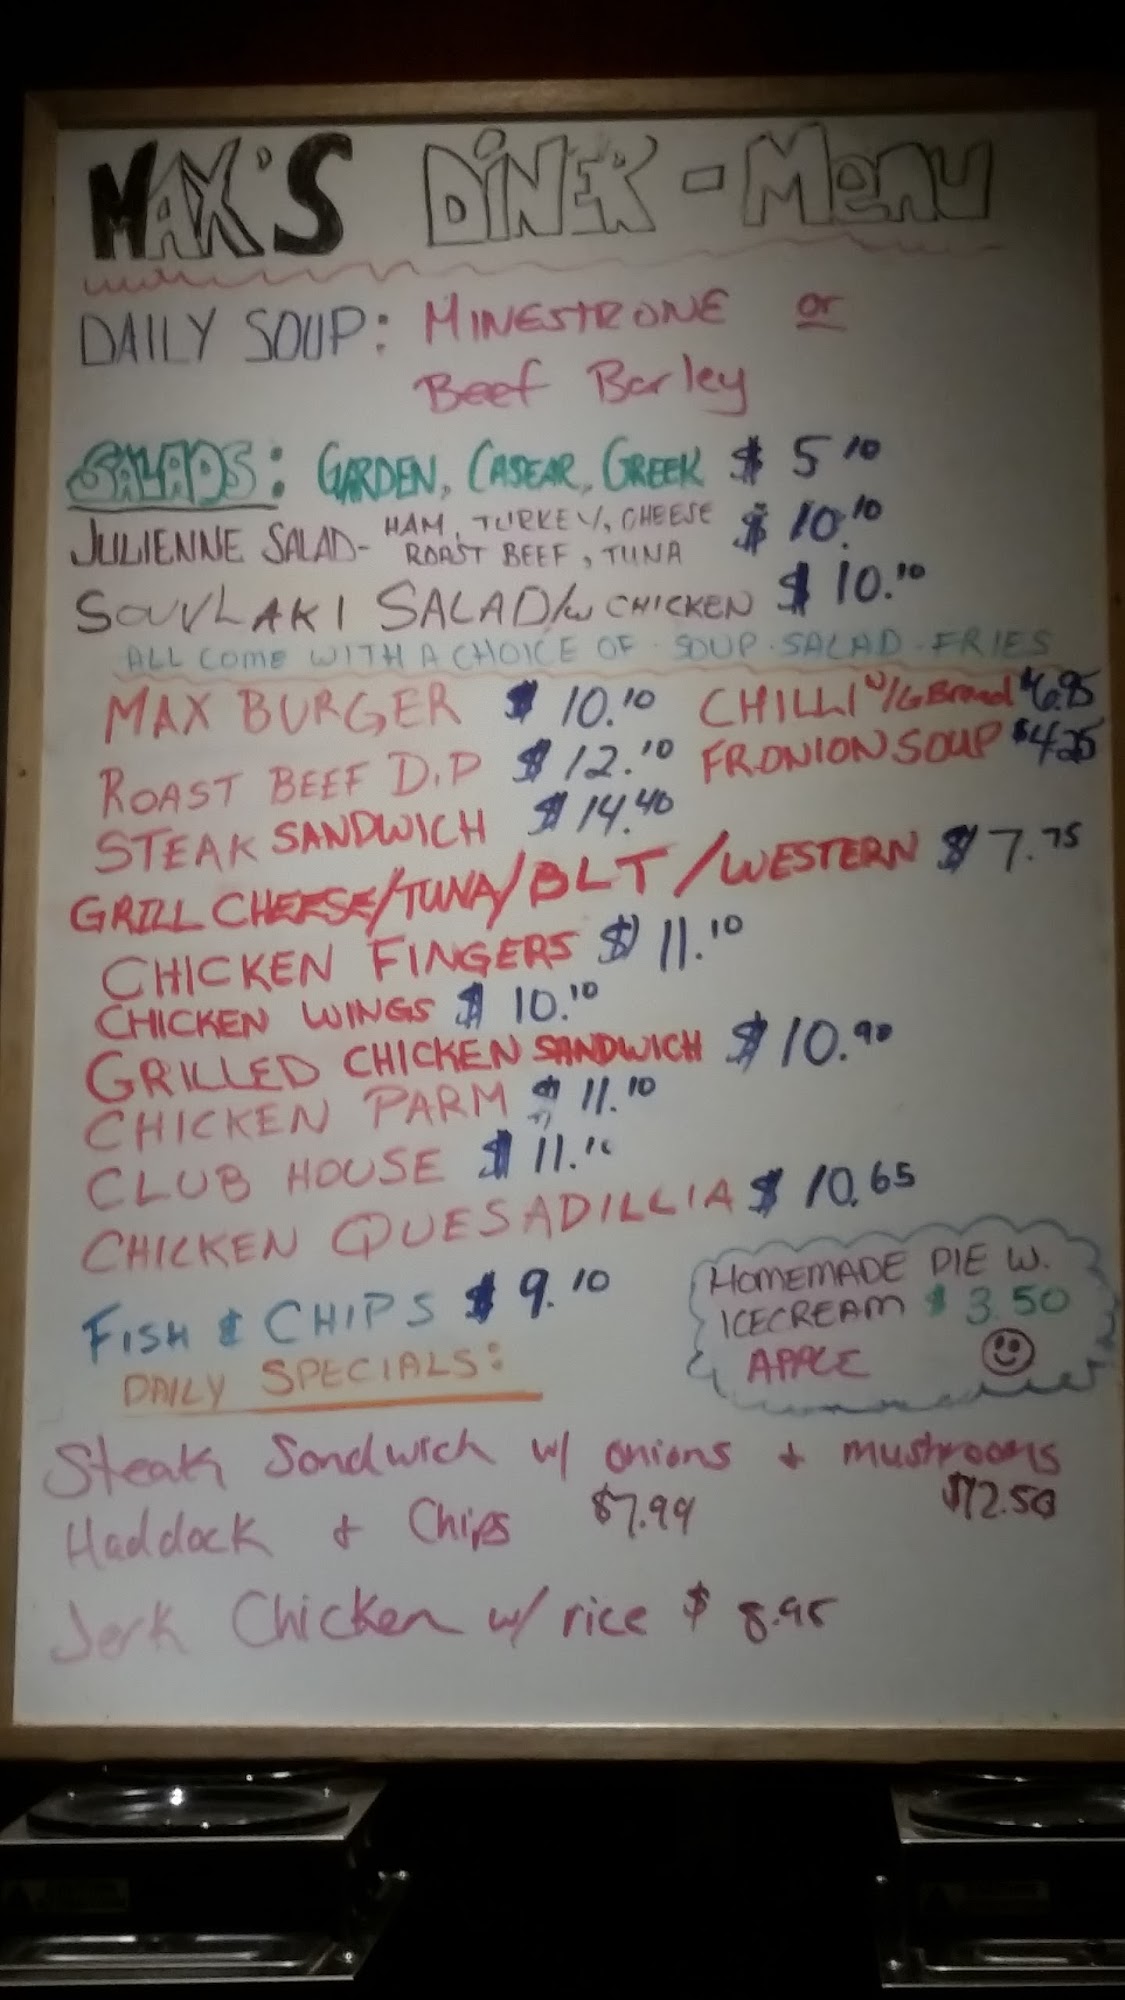 MAX'S DINER - MENU
DAILY SOUP: MINESTRONE or
Beef Barley
SALADS: GARDEN, CASEAR, GREEK $ 5 10
JULIENNE SALAD- HAM, TURKEY, CHEESE $ 10.10
ROAST BEEF, TUNA
SOUVLAKI SALAD/w CHICKEN $ 10.10
ALL COME WITH A CHOICE OF · SOUP · SALAD · FRIES
MAX BURGER $ 10.10
CHILLI W/G Bread $6.95
ROAST BEEF DIP $ 12.10
FRONION SOUP $4.25
STEAK SANDWICH $ 14.40
GRILL CHEESE/TUNA/BLT/WESTERN $ 7.75
CHICKEN FINGERS $ 11.10
CHICKEN WINGS $ 10.10
GRILLED CHICKEN SANDWICH $ 10.90
CHICKEN PARM $ 11.10
CLUB HOUSE $ 11.10
CHICKEN QUESADILLIA $ 10.65
FISH & CHIPS $ 9.10
HOMEMADE PIE W.
ICECREAM $ 3.50
APPLE
DAILY SPECIALS:
Steak Sandwich w/ onions + mushrooms
$12.50
Haddock + Chips $7.99
Jerk Chicken w/ rice $ 8.95